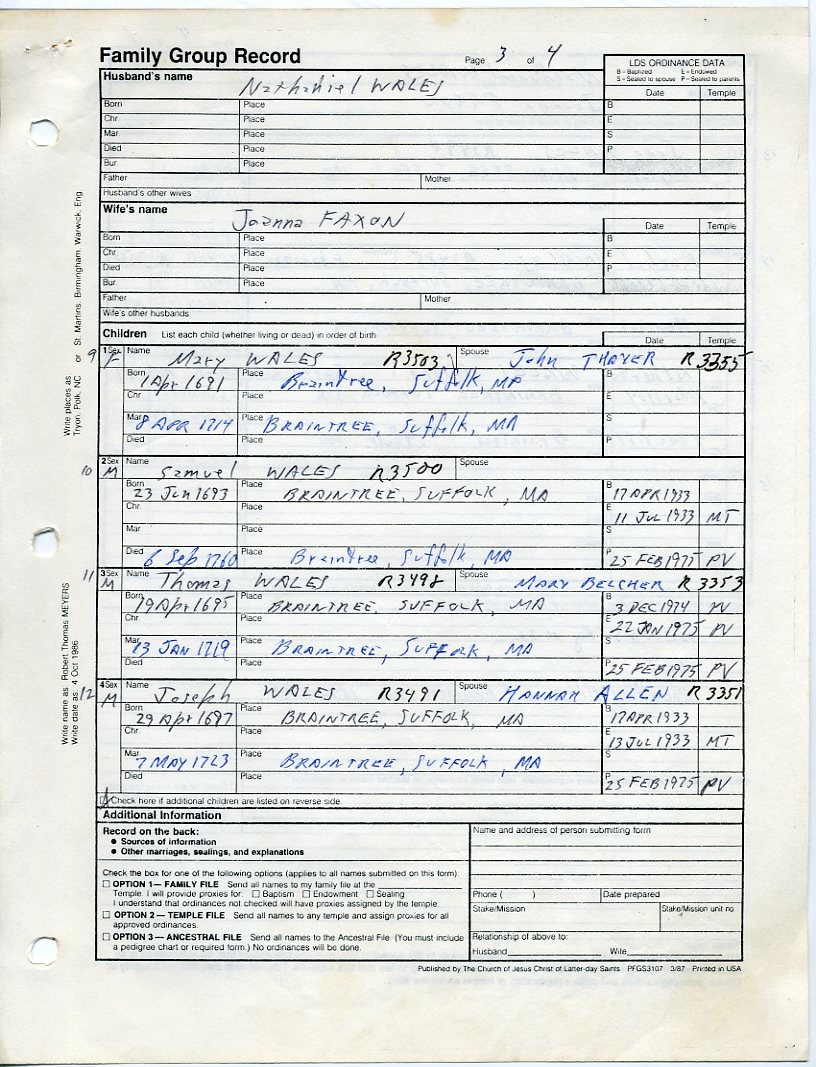 Family Group Record
Page 3 of 4
LDS ORDINANCE DATA
B - Baptized E - Endowed
S - Sealed to spouse P - Sealed to parents
Husband's name
Nathaniel WALES
Date Temple
Born Place B
Chr. Place E
Mar. Place S
Died Place P
Bur. Place
Father Mother
Husband's other wives
Wife's name
Joanna FAXON
Date Temple
Born Place B
Chr. Place E
Died Place P
Bur. Place
Father Mother
Wife's other husbands
Write places as: Tryon, Polk, NC or St. Martins, Birmingham, Warwick, Eng
Write name as: Robert Thomas MEYERS
Write date as: 4 Oct 1986
Children List each child (whether living or dead) in order of birth
Date Temple
9 1 Sex F Name Mary WALES R3503 Spouse John THAYER R3355
Born 1 Apr 1691 Place Braintree, Suffolk, MA B
Chr. Place E
Mar. 8 APR 1714 Place BRAINTREE, SUFFOLK, MA S
Died Place P
10 2 Sex M Name Samuel WALES R3500 Spouse
Born 23 Jun 1693 Place BRAINTREE, SUFFOLK, MA B 17 APR 1933
Chr. Place E 11 JUL 1933 MT
Mar. Place S
Died 6 Sep 1760 Place Braintree, Suffolk, MA P 25 FEB 1975 PV
11 3 Sex M Name Thomas WALES R3498 Spouse MARY BELCHER R3353
Born 19 Apr 1695 Place BRAINTREE, SUFFOLK, MA B 3 DEC 1974 PV
Chr. Place E 22 JAN 1975 PV
Mar. 13 JAN 1719 Place BRAINTREE, SUFFOLK, MA S
Died Place P 25 FEB 1975 PV
12 4 Sex M Name Joseph WALES R3491 Spouse HANNAH ALLEN R3351
Born 29 Apr 1697 Place BRAINTREE, SUFFOLK, MA B 17 APR 1933
Chr. Place E 13 JUL 1933 MT
Mar. 7 MAY 1723 Place BRAINTREE, SUFFOLK, MA S
Died Place P 25 FEB 1975 PV
Check here if additional children are listed on reverse side.
Additional Information
Record on the back:
• Sources of information
• Other marriages, sealings, and explanations
Check the box for one of the following options (applies to all names submitted on this form).
☐ OPTION 1— FAMILY FILE Send all names to my family file at the
Temple. I will provide proxies for: ☐ Baptism ☐ Endowment ☐ Sealing
I understand that ordinances not checked will have proxies assigned by the temple.
☐ OPTION 2 — TEMPLE FILE Send all names to any temple and assign proxies for all
approved ordinances.
☐ OPTION 3 — ANCESTRAL FILE Send all names to the Ancestral File. (You must include
a pedigree chart or required form.) No ordinances will be done.
Name and address of person submitting form
Phone ( ) Date prepared
Stake/Mission Stake/Mission unit no.
Relationship of above to:
Husband Wife
Published by The Church of Jesus Christ of Latter-day Saints PFGS3107 3/87 Printed in USA